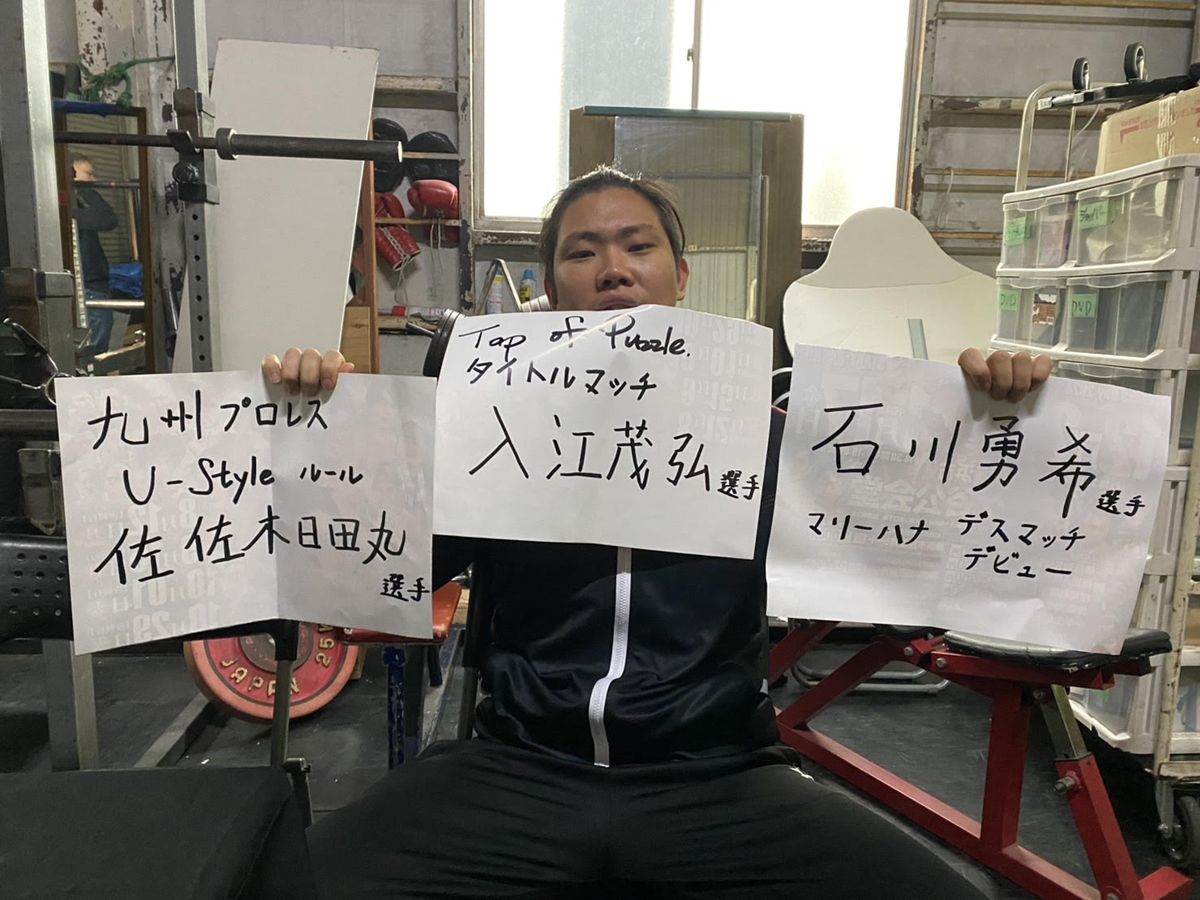 九州プロレス
U-Style ルール
佐佐木日田丸
選手
Top of Puzzle.
タイトルマッチ
入江茂弘選手
石川勇希選手
マリーハナ デスマッチ
デビュー
JAPAN 25
DVD
DVD